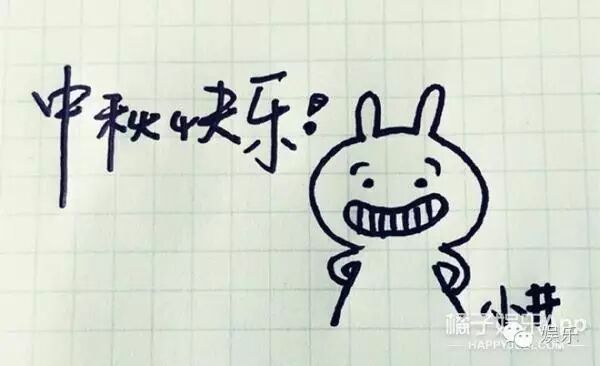 中秋快乐!
小井
橘子娱乐App
HAPPYJUZI.COM
娱乐